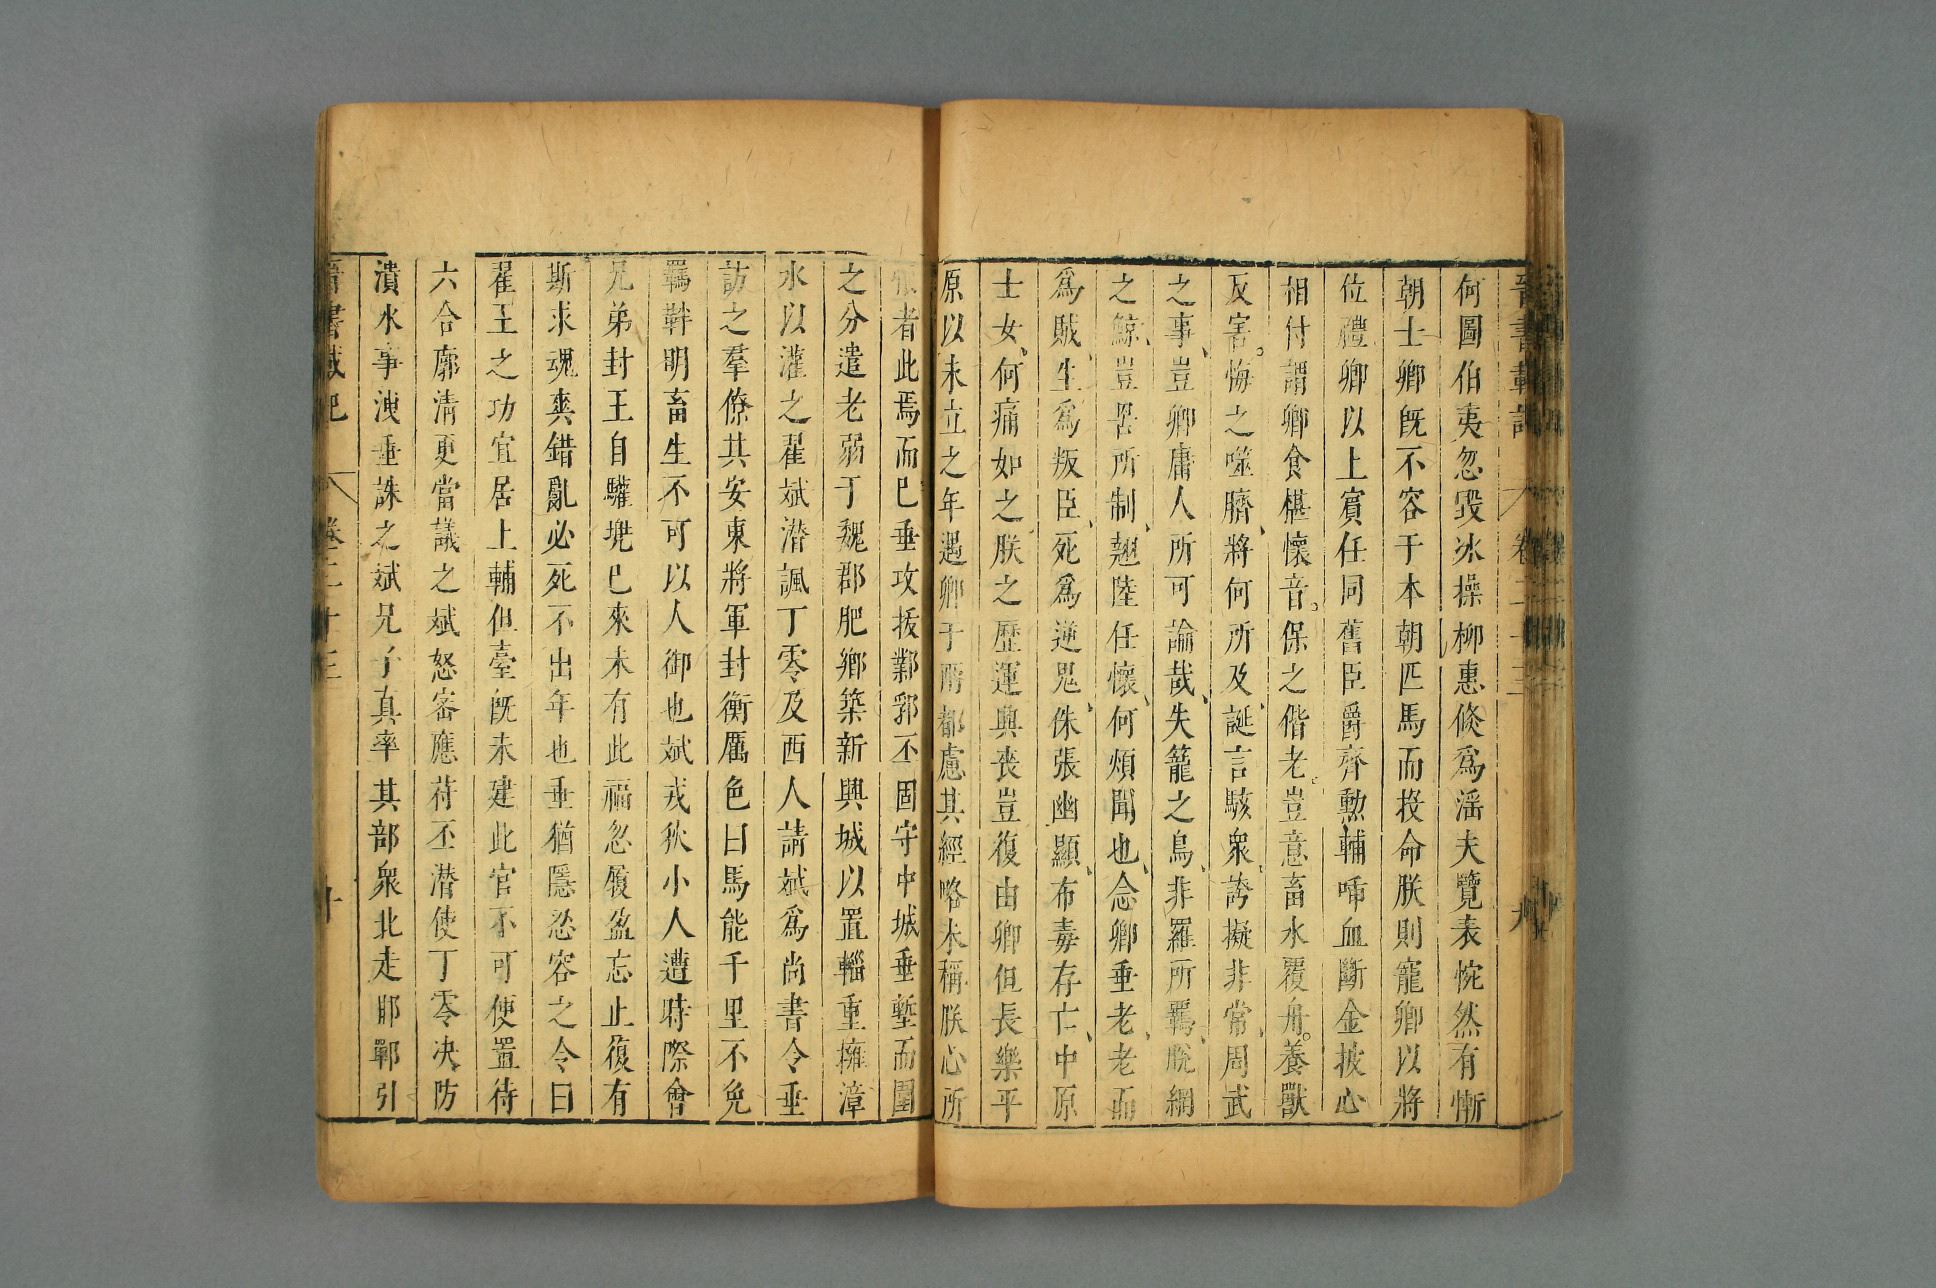 晉書載記 卷二十三 九
何圖伯夷忽毀冰操柳惠倐爲滛夫覽表惋然有慚
朝士卿旣不容于本朝匹馬而投命朕則寵卿以將
位禮卿以上賓任同舊臣爵齊勲輔歃血斷金披心
相付謂卿食椹懷音。保之偕老。豈意畜水覆舟。養獸
反害。悔之噬臍、將何所及、誕言駭衆、誇擬非常、周武
之事、豈卿庸人所可論哉、失籠之鳥、非羅所羈、脫網
之鯨、豈罟所制、翹陸任懷、何煩聞也、念卿垂老、老而
爲賊、生爲叛臣、死爲逆鬼、侏張幽顯、布毒存亡、中原
士女、何痛如之、朕之歷運興喪豈復由卿但長樂平
原以未立之年遇卿于兩都慮其經略未稱朕心所
恨者此焉而巳垂攻拔鄴郛丕固守中城垂塹而圍
之分遣老弱于魏郡肥鄉築新興城以置輜重擁漳
水以灌之翟斌潜諷丁零及西人請斌爲尚書令垂
訪之羣僚其安東將軍封衡厲色曰馬能千里不免
羈靽明畜生不可以人御也斌戎狄小人遭時際會
兄弟封王自驩兠巳來未有此福忽履盈忘止復有
斯求魂爽錯亂必死不出年也垂猶隱忍容之令曰
翟王之功宜居上輔但臺旣未建此官不可使置待
六合廓清更當議之斌怒密應苻丕潜使丁零决防
潰水事洩垂誅之斌兄子真率其部衆北走邯鄲引
晉書載記 卷二十三 十